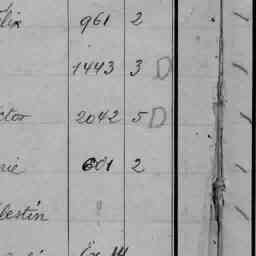 lix 961 2
1443 3 D
ctor 2042 5 D
nie 601 2
lestin
14